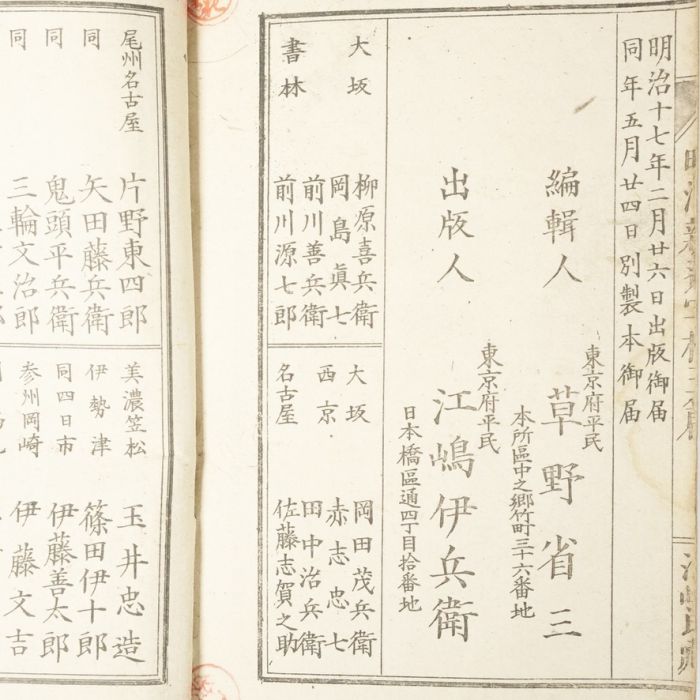 明治十七年二月廿六日出版御届
同年五月廿四日別製本御届
編輯人
東京府平民
草野省三
本所區中之郷竹町三十六番地
出版人
東京府平民
江嶋伊兵衛
日本橋區通四丁目拾番地
大坂
柳原喜兵衛
岡島眞七
前川善兵衛
書林
前川源七郎
大坂
岡田茂兵衛
西京
赤志忠七
田中治兵衛
名古屋
佐藤志賀之助
尾州名古屋
片野東四郎
同
矢田藤兵衛
同
鬼頭平兵衛
同
三輪文治郎
美濃笠松
玉井忠造
伊勢津
篠田伊十郎
同四日市
伊藤善太郎
参州岡崎
伊藤文吉